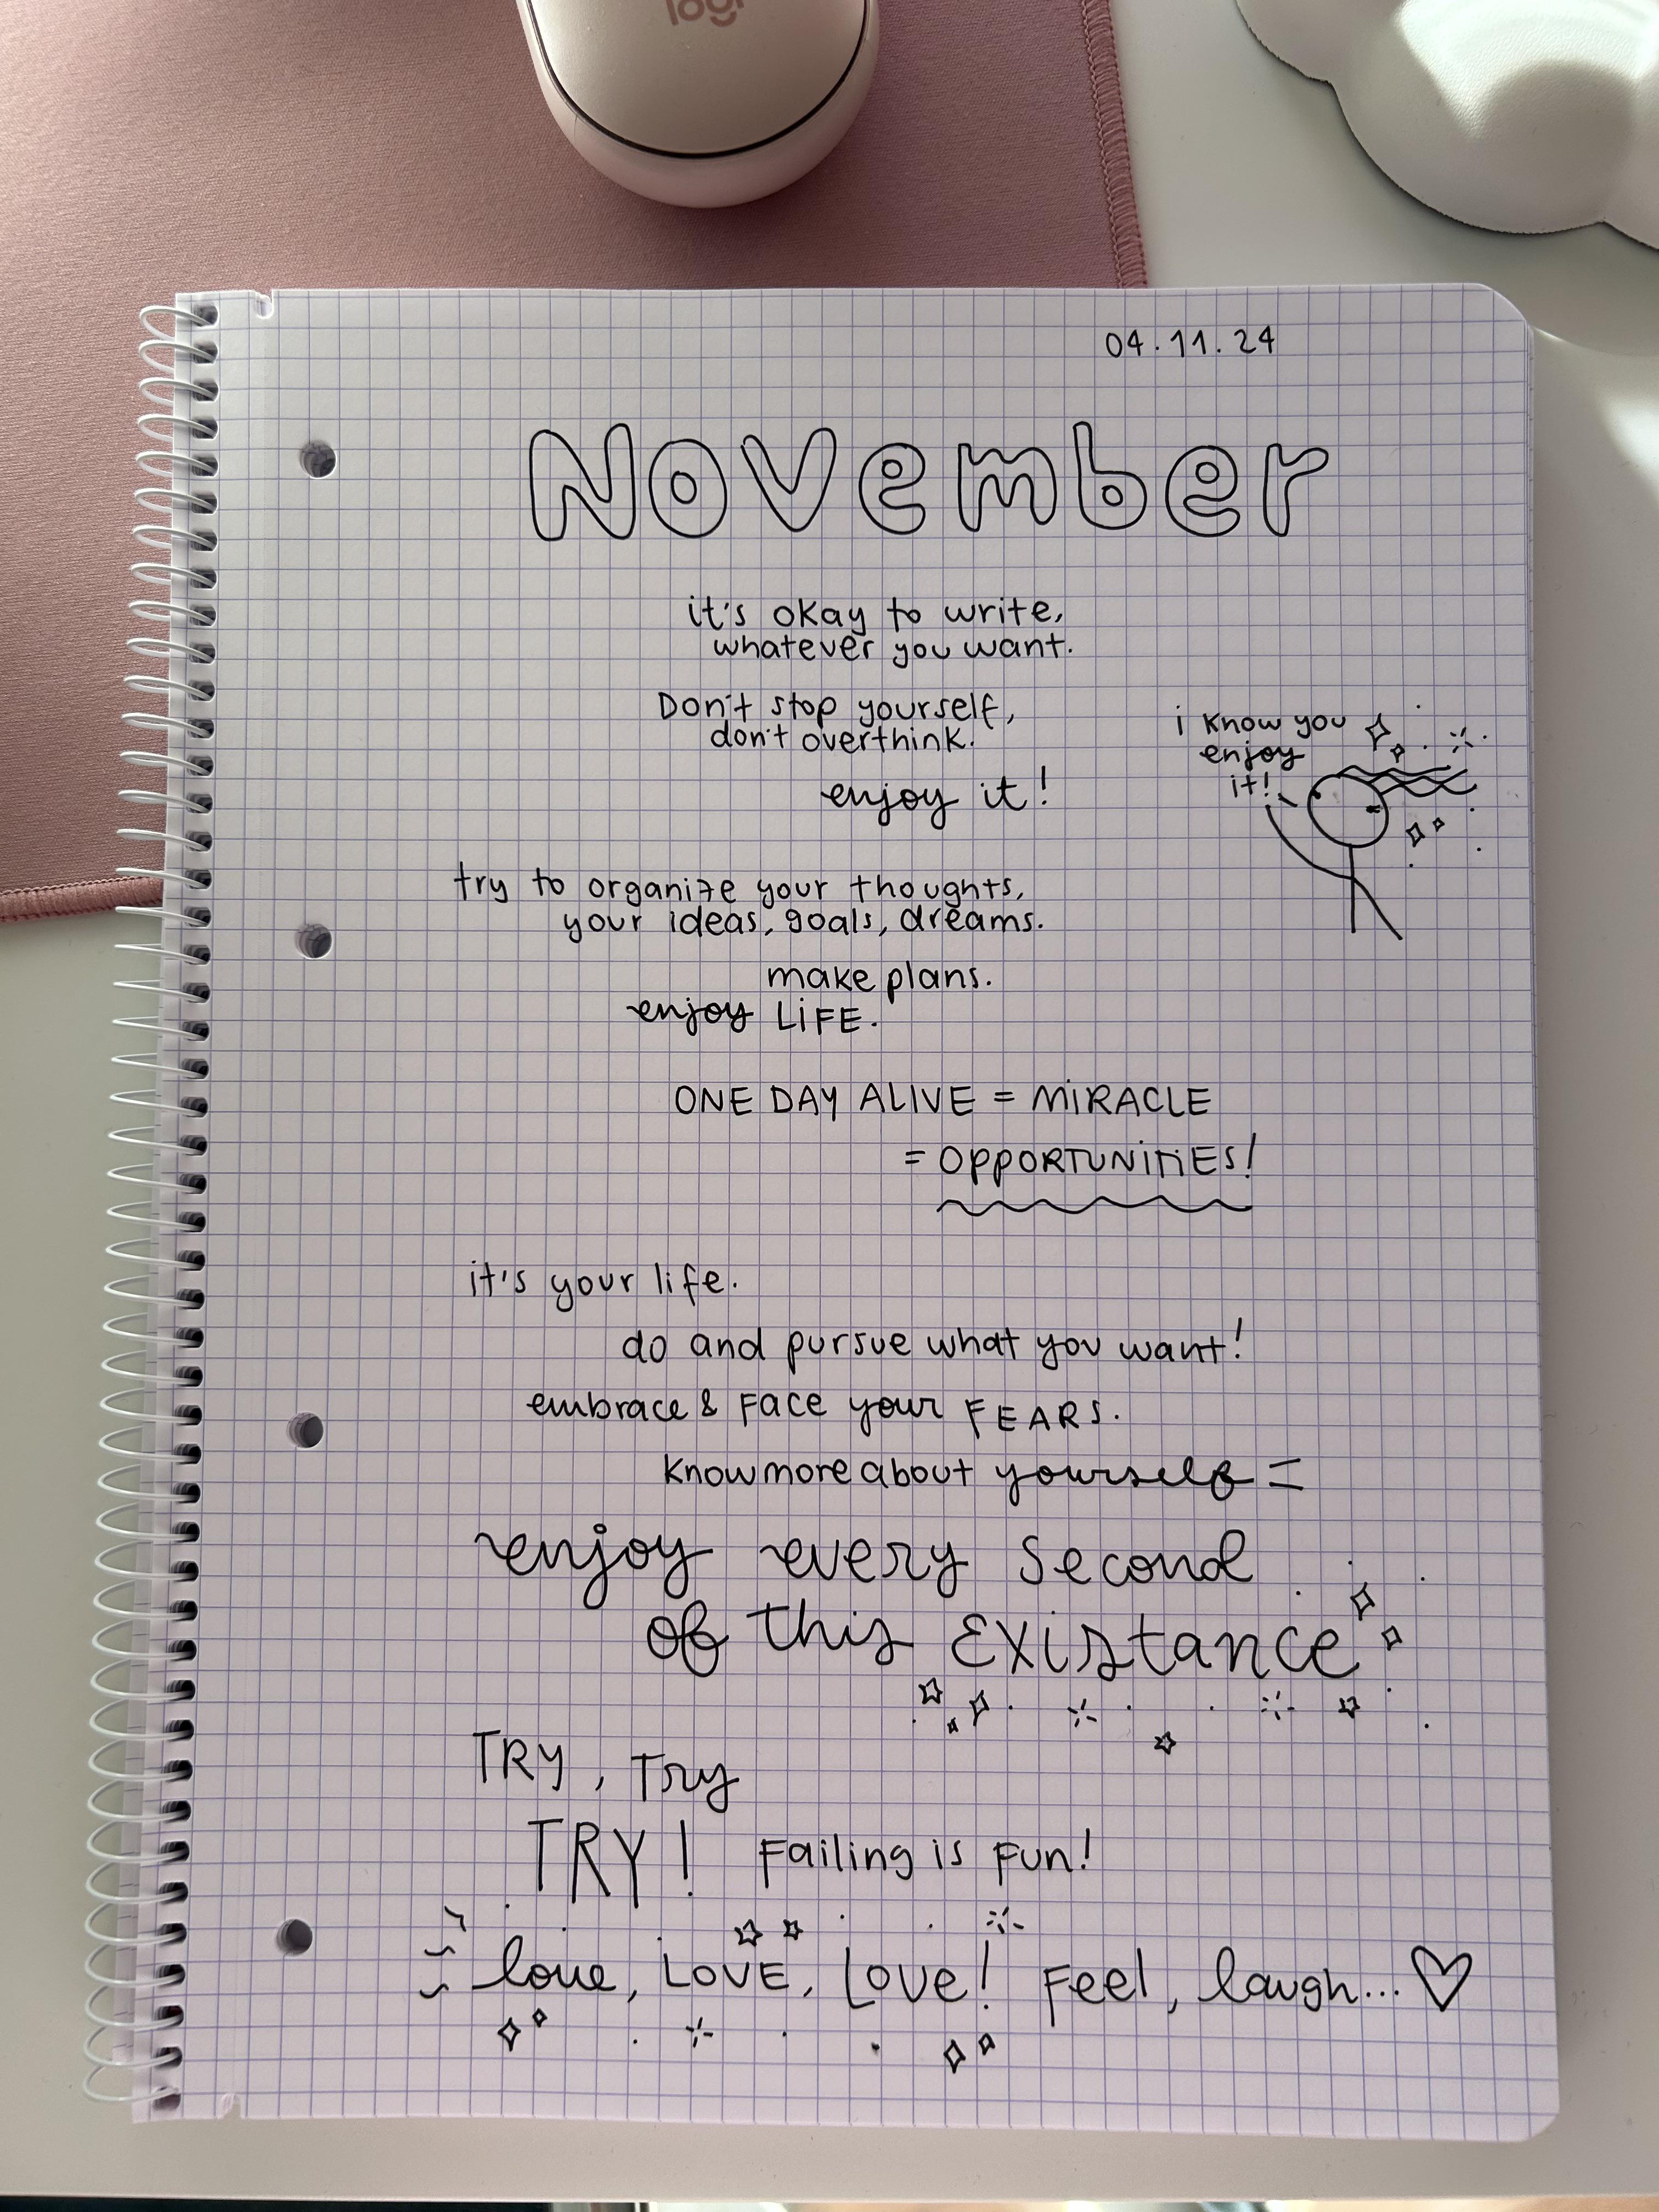 logi
04.11.24
November
it's okay to write,
whatever you want.
Don't stop yourself,
don't overthink.
enjoy it!
i know you
enjoy
it!
try to organize your thoughts,
your ideas, goals, dreams.
make plans.
enjoy LiFE.
ONE DAY ALIVE = MiRACLE
= OPPORTUNITIES!
it's your life.
do and pursue what you want!
embrace & Face your FEARS.
Know more about yourself =
enjoy every second
of this Existance
TRY, Try
TRY! Failing is Fun!
love, LOVE, Love! Feel, laugh... ♡